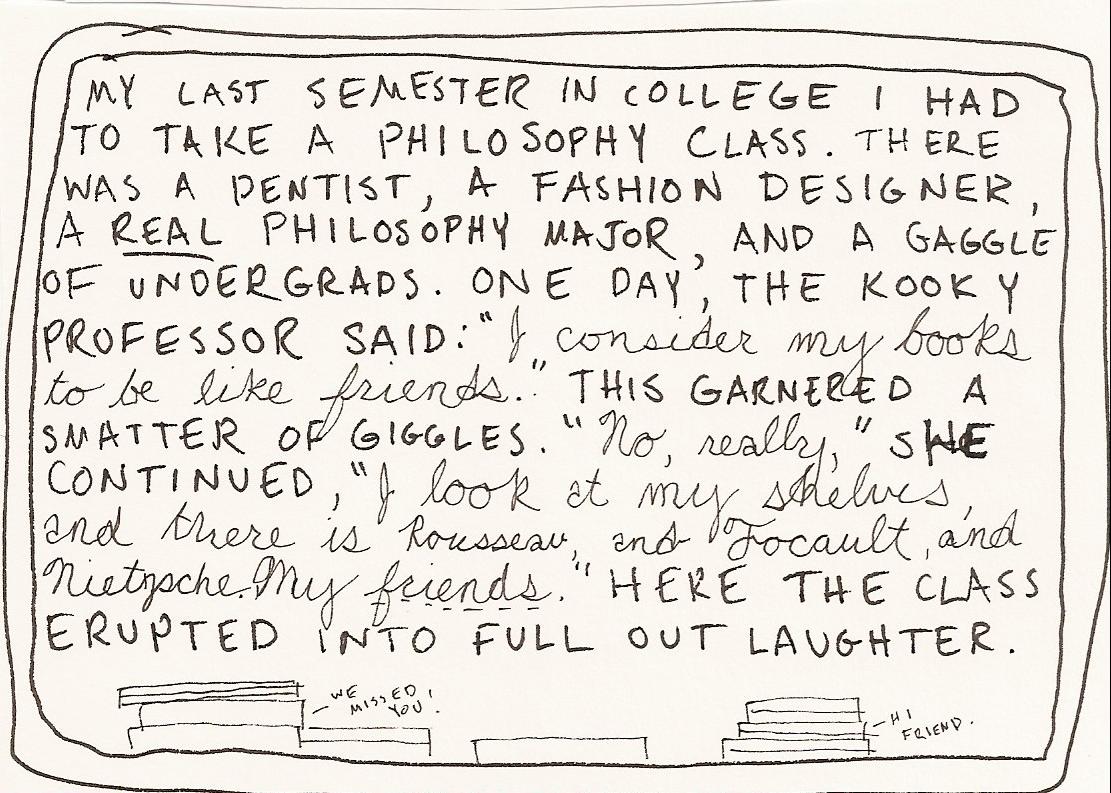 MY LAST SEMESTER IN COLLEGE I HAD
TO TAKE A PHILOSOPHY CLASS. THERE
WAS A DENTIST, A FASHION DESIGNER,
A REAL PHILOSOPHY MAJOR, AND A GAGGLE
OF UNDERGRADS. ONE DAY, THE KOOKY
PROFESSOR SAID: "I consider my books
to be like friends." THIS GARNERED A
SMATTER OF GIGGLES. "No, really," SHE
CONTINUED, "I look at my shelves,
and there is Rousseau, and Focault, and
Nietzsche. My friends." HERE THE CLASS
ERUPTED INTO FULL OUT LAUGHTER.
WE
MISSED
YOU!
HI
FRIEND.